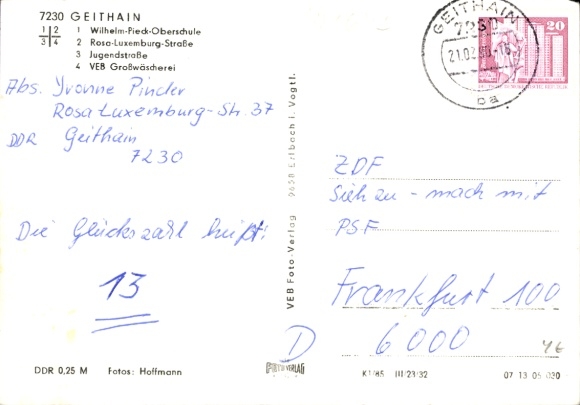 7230 GEITHAIN
1 Wilhelm-Pieck-Oberschule
2 Rosa-Luxemburg-Straße
3 Jugendstraße
4 VEB Großwäscherei
1 2
3 4
Abs. Yvonne Pinder
Rosa Luxemburg-Str. 37
DDR Geithain
7230
Die Glückszahl heißt:
13
DDR 0,25 M Fotos: Hoffmann
VEB Foto-Verlag 9658 Erlbach i. Vogtl.
FOTO VERLAG
GEITHAIN
7230
20
ZDF
Sieh zu - mach mit
PSF
Frankfurt 100
6000
D
K1/85 III/23/32 07 13 05 020